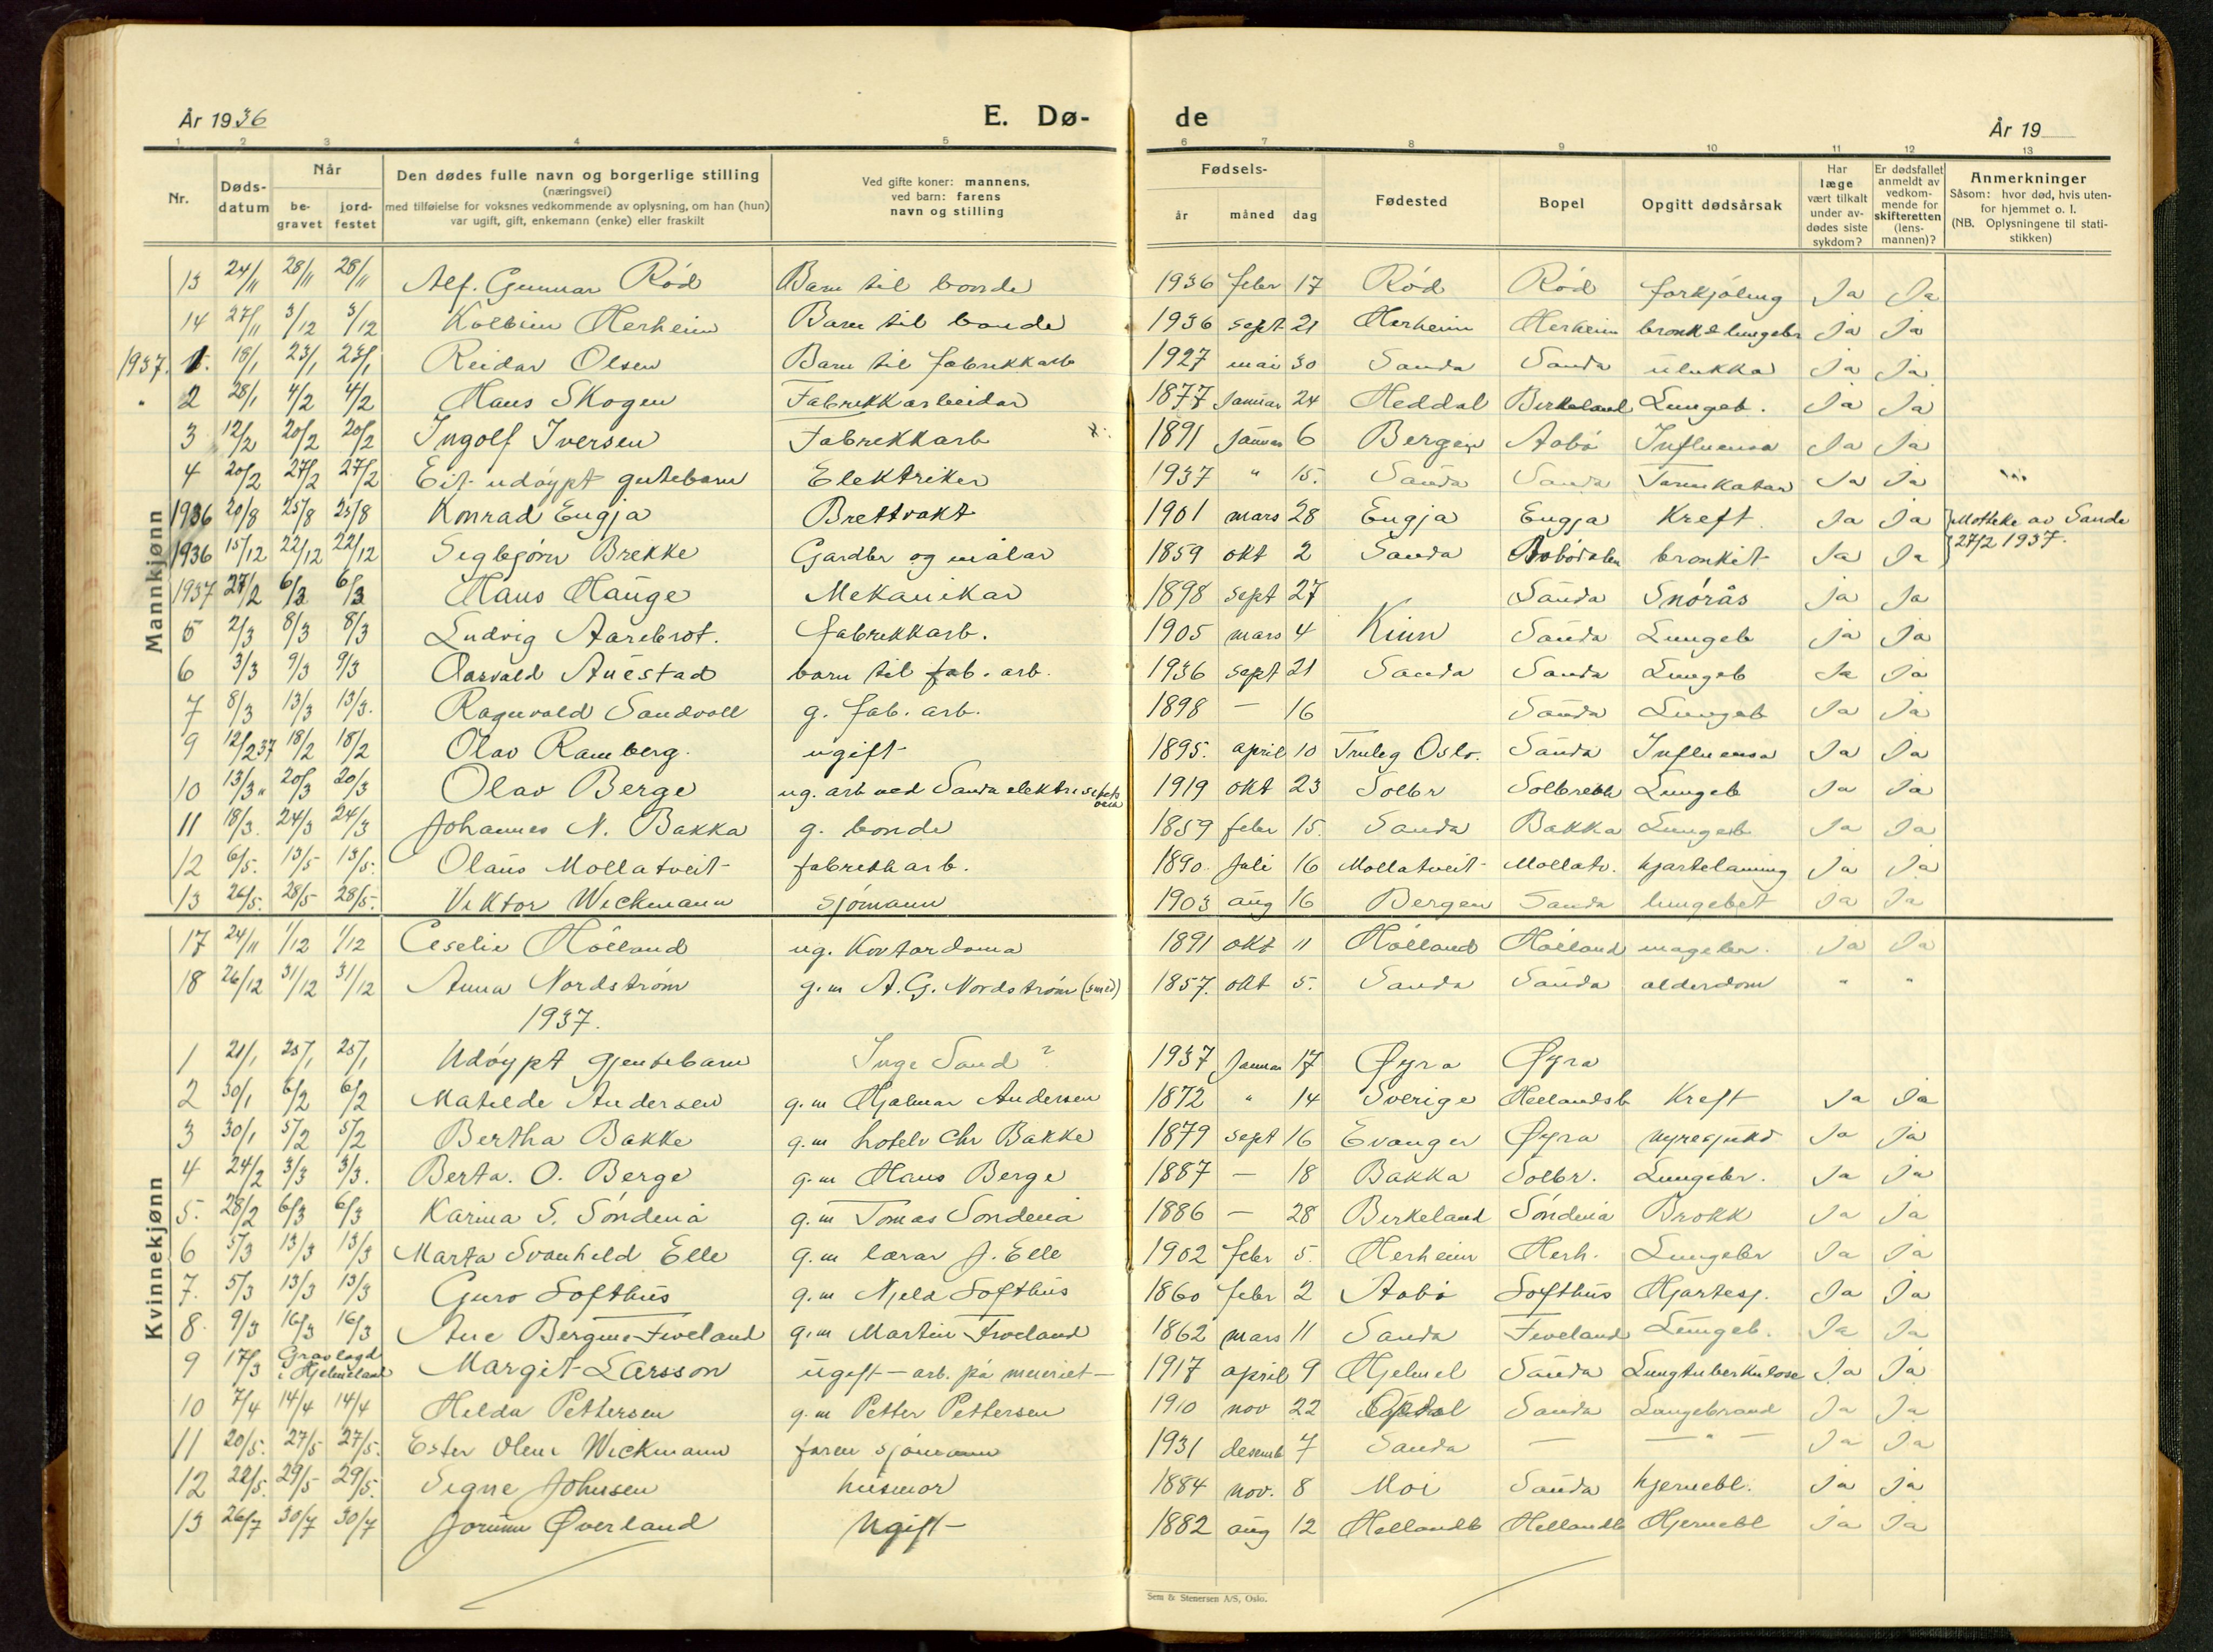 År 1936 E. Dø- de År 19
1 2 3 4 5 6 7 8 9 10 11 12 13
Nr. Døds-datum Når be-gravet jord-festet Den dødes fulle navn og borgerlige stilling (næringsvei) med tilføielse for voksnes vedkommende av oplysning, om han (hun) var ugift, gift, enkemann (enke) eller fraskilt Ved gifte koner: mannens, ved barn: farens navn og stilling Fødsels- år måned dag Fødested Bopel Opgitt dødsårsak Har læge vært tilkalt under av-dødes siste sykdom? Er dødsfallet anmeldt av vedkom-mende for skifteretten (lens-mannen)? Anmerkninger Såsom: hvor død, hvis uten-for hjemmet o. l. (NB. Oplysningene til stati-stikken)
Mannkjønn
13 24/11 28/11 28/11 Alf. Gunnar Rød Barn til bonde 1936 febr 17 Rød Rød forkjøling Ja Ja
14 27/11 3/12 3/12 Kolbein Herheim Barn til bonde 1936 sept 21 Herheim Herheim bronk & lungebr Ja Ja
1937. 1. 18/1 23/1 23/1 Reidar Olsen Barn til fabrikkarb 1927 mai 30 Sanda Sanda ulukka Ja Ja
" 2 28/1 4/2 4/2 Hans Skogen Fabrikkarbeidar 1877 Januar 24 Heddal Birkeland Lungeb. Ja Ja
3 12/2 20/2 20/2 Ingolf Iversen Fabrikkarb 1891 Januar 6 Bergen Aabø Influensa Ja Ja
4 20/2 27/2 27/2 Eit udøypt gutebarn Elektriker 1937 " 15. Sanda Sanda Tarmkatar Ja Ja
1936 20/8 25/8 25/8 Konrad Engja Brettvakt 1901 mars 28 Engja Engja Kreft. Ja Ja Motteke av Sande
1936 15/12 22/12 22/12 Segbjørn Brekke Gardbr og målar 1859 okt 2 Sanda Aabødalen bronkit Ja Ja 27/2 1937.
1937 27/2 6/3 6/3 Hans Hauge Mekanikar 1898 sept 27 Sauda Snørås Ja Ja
5 2/3 8/3 8/3 Ludvig Aarebrot. fabrikkarb. 1905 mars 4 Kinn Sauda Lungeb Ja Ja
6 3/3 9/3 9/3 Oarvald Auestad barn til fab. arb. 1936 sept 21 Sauda Sauda Lungeb Ja Ja
7 8/3 13/3 13/3. Ragnvald Sandvoll g. fab. arb. 1898 — 16 Sauda Lungeb Ja Ja
9 12/2 37 18/2 18/2 Olav Ramberg. ugift 1895. april 10 Truleg Oslo. Sauda Influensa Ja Ja
10 13/3 " 20/3 20/3 Olav Berge ug. arb ved Sauda elektrisitetsverk 1919 okt 23 Solbr Solbrekk Lungeb Ja Ja
11 18/3. 24/3 24/3 Johannes N. Bakka g. bonde 1859 febr 15. Sauda Bakka Lungeb Ja Ja
12 6/5. 13/5 13/5. Olaus Mollatveit fabrikkarb. 1890. Juli 16 Mollatveit Mollatv. hjartelaming Ja Ja
13 26/5. 28/5 28/5. Viktor Wickmann sjømann 1903 aug 16 Bergen Sauda lungebet Ja Ja
Kvinnekjønn
17 24/11 1/12 1/12 Ceselie Hølland ug. Kontordama 1891 okt 11 Hølland Hølland magebr. Ja Ja
18 26/12 31/12 31/12 Anna Nordstrøm g.m A. G. Nordstrøm (smed) 1857. okt 5. Sauda Sauda alderdom " "
1937.
1 21/1 25/1 25/1 Udøypt gjentebarn Inge Sand? 1937 Januar 17 Øyra Øyra
2 30/1 6/2 6/2 Matilde Andersen g.m Hjalmar Andersen 1872 " 14 Sverige Hellandsb Kreft Ja Ja
3 30/1 5/2 5/2 Bertha Bakke g.m hotelv Chr Bakke 1879 sept 16 Evanger Øyra nyresjukd Ja Ja
4 24/2 3/3 3/3. Berta. O. Berge g.m Hans Berge 1887 — 18 Bakka Solbr. Lungebr. Ja Ja
5. 28/2 6/3 6/3 Karina S. Søndenå g.m Tomas Søndenå 1886 — 28 Birkeland Søndenå Brokk Ja Ja
6 5/3 13/3 13/3 Marta Svanhild Elle g.m lærar J. Elle 1902 febr 5. Herheim Herh. Lungebr Ja Ja
7. 5/3 13/3 13/3 Guro Softhus g.m Njeld Softhus 1860 febr 2 Aabø Softhus Hjartesj. Ja Ja
8. 9/3 16/3 16/3 Ane Bergine Fiveland g.m Martin Fiveland 1862 mars 11 Sauda Fiveland Lungeb. Ja Ja
9 17/3 Gravlagd i Hjelmeland Margit Larsson ugift — arb. på meieriet — 1917 april 9 Hjelmel Sauda Lungtuberkulose Ja Ja
10 7/4 14/4 14/4 Hilda Pettersen g.m Petter Pettersen 1910 nov 22 Opdal Sauda Lungebrand Ja Ja
11 20/5. 27/5 27/5. Ester Oline Wickmann faren sjømann 1931 desemb 7 Sauda — — " — Ja Ja
12 22/5. 29/5 29/5. Signe Johnsen husmor 1884 nov. 8 Moi Sauda hjernebl. Ja Ja
13 26/7 30/7 30/7 Jorunn Øverland Ugift 1882 aug 12 Hellandb Hellandb Hjernebl Ja Ja
Sem & Stenersen A/S, Oslo.